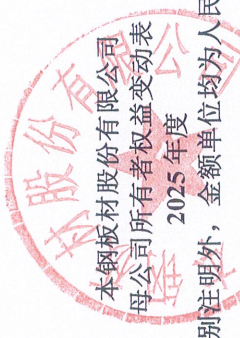 本钢板材股份有限公司
母公司所有者权益变动表
2025 年度
别注明外，金额单位均为人民
股份有